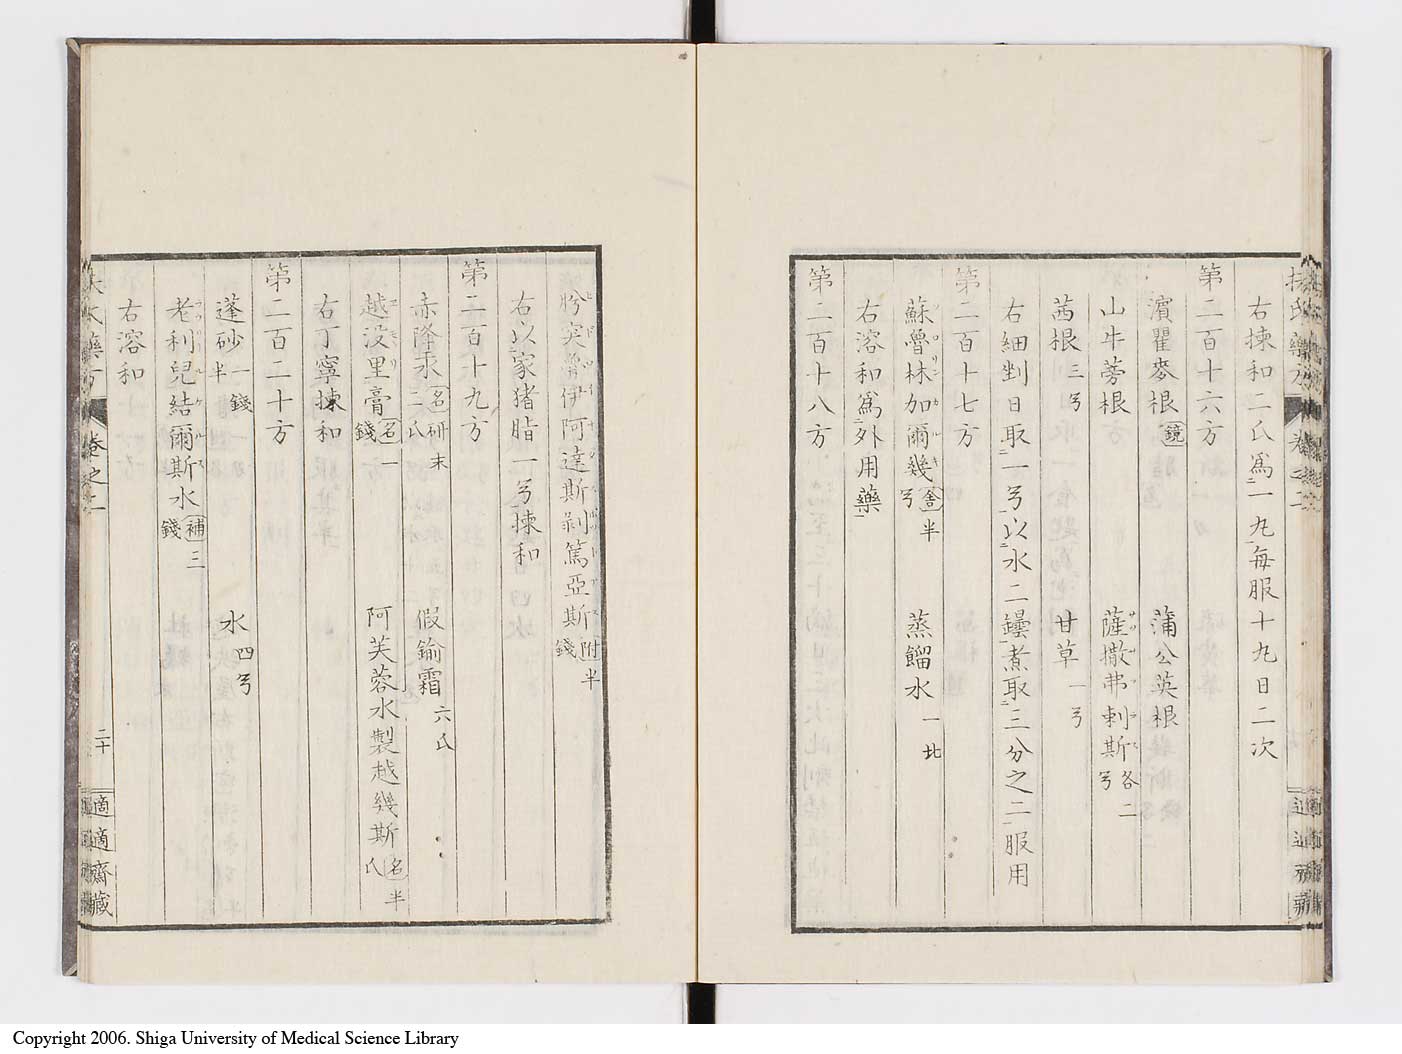 右揀和二氏為一丸毎服十九日二次
第二百十六方
濱瞿麥根鏡 蒲公英根
山牛蒡根 薩撒弗剌斯各二兮
茜根三兮 甘草一兮
右細剉日取一兮以水二鑸煮取三分之二服用
第二百十七方
蘇魯林加爾幾舎半兮 蒸餾水一比
右溶和為外用藥
第二百十八方
肹突魯伊阿達斯剥篤亞斯附半錢
右以家猪脂一兮揀和
第二百十九方
赤降汞名研末二氏 假鍮霜六氏
越没里膏名一錢 阿芙蓉水製越幾斯名半氏
右丁寧揀和
第二百二十方
蓬砂一錢半 水四兮
老利兒結爾斯水補三錢
右溶和
扶氏藥方 卷之二
二十
適適齋藏
Copyright 2006. Shiga University of Medical Science Library